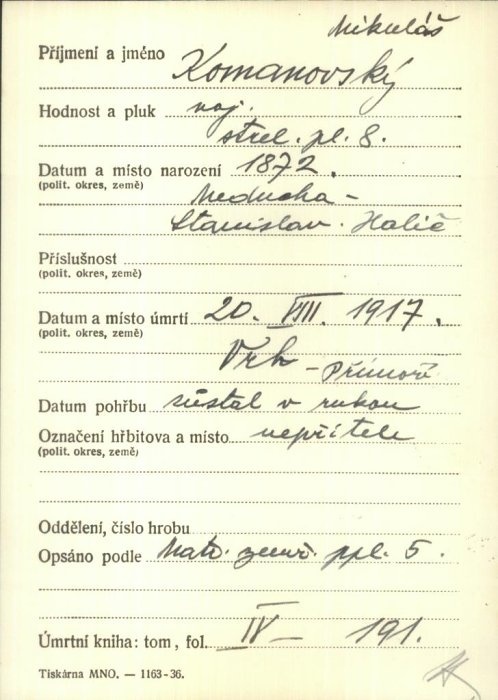 Mikuláš
Příjmení a jméno Komanovský
Hodnost a pluk voj.
střel. pl. 8.
Datum a místo narození 1872.
(polit. okres, země) Meducha -
Stanislav. Halič
Příslušnost
(polit. okres, země)
Datum a místo úmrtí 20. VIII. 1917.
(polit. okres, země)
Vrh - Přímoří
Datum pohřbu zůstal v rukou
Označení hřbitova a místo nepřítele
(polit. okres, země)
Oddělení, číslo hrobu
Opsáno podle Matr. zemř. ppl. 5.
Úmrtní kniha: tom, fol. IV - 191.
Tiskárna MNO. — 1163-36.